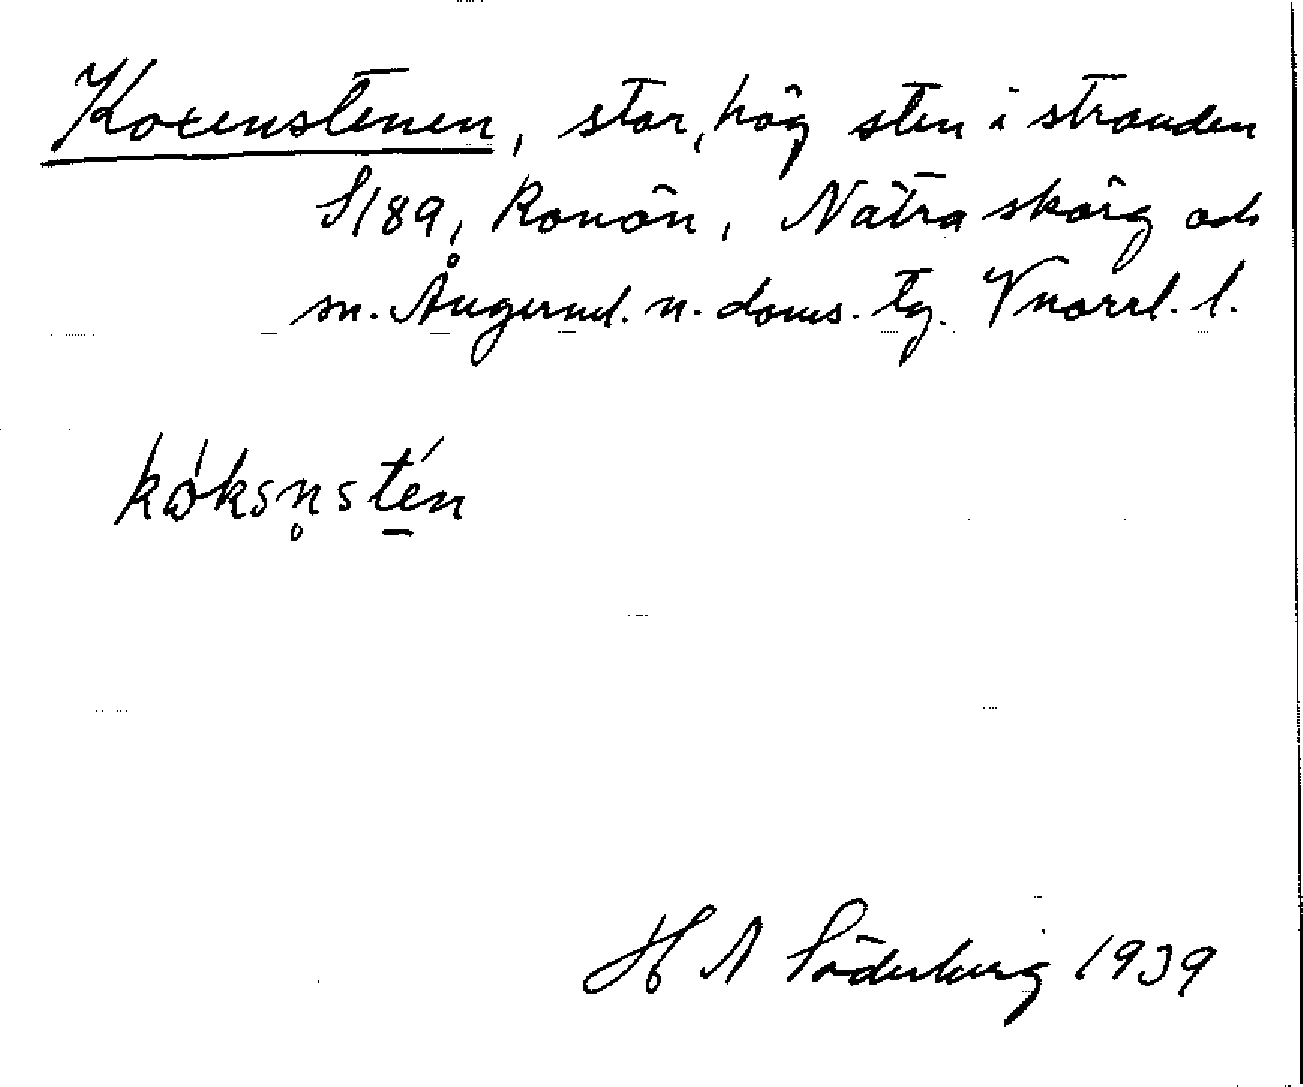 Koxenstenen, stor, hög sten i stranden
S189, Ronön, Nätra skärg och
sn. Ångerml. n. doms. tg. Vnorrl. l.
køksn̥stén
H A Söderberg 1939